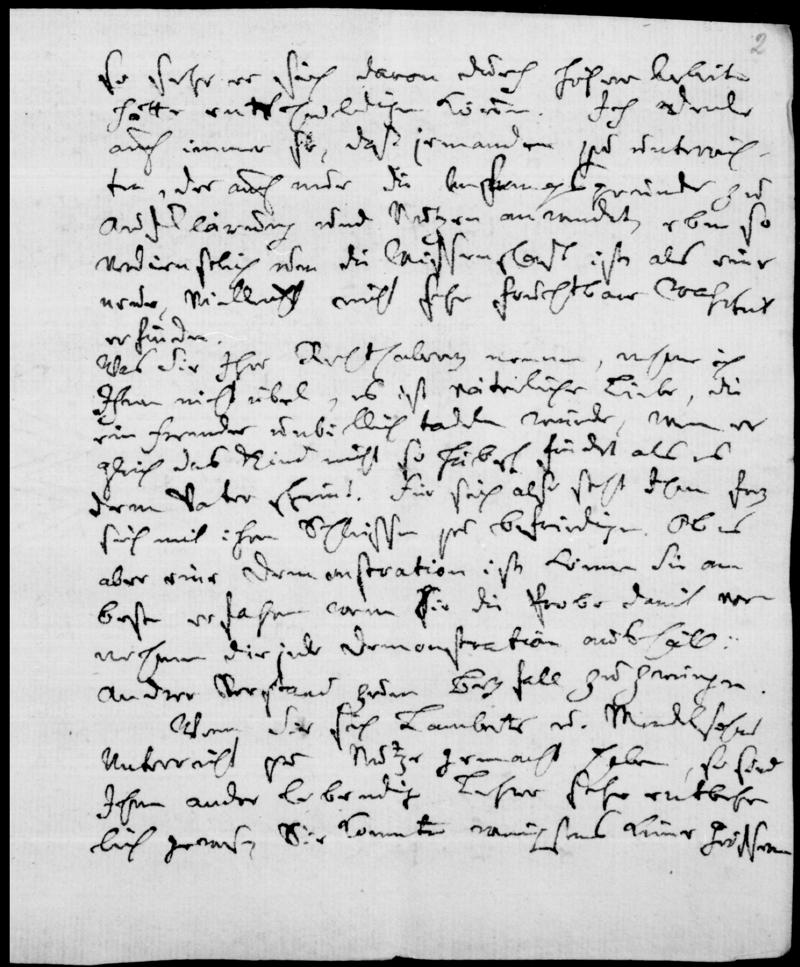 2
so sehr er sich davon durch höhere Arbeiten
hätte entschuldigen können. Ich denke
auch immer so, daß jemanden zu unterrich-
ten, der auch nur die Anfangsgründe zu
Aufklärung und Nutzen anwendet, eben so
verdienstlich um die Wissenschaft ist, als eine
neue, vielleicht nicht sehr fruchtbare Wahrheit
erfinden.
Was Sie Ihre Rechthaberey nennen, nehme ich
Ihnen nicht übel, es ist väterliche Liebe, die
ein Fremder unbillich tadeln würde, wenn er
gleich das Kind nicht so hübsch findet als es
dem Vater scheint. Für sich also steht Ihnen frey
sich mit ihren Schlüssen zu befriedigen. Ob es
aber eine Demonstration ist, können Sie am
besten erfahren wenn Sie die Probe damit vor-
nehmen die jede Demonstration aushält:
Andrer Verstand zum Beyfall zu zwingen.
Wenn Sie sich Lamberts u. Mendelssohns
Unterricht zu Nutze gemacht haben, so sind
Ihnen andre lebendige Lehrer sehr entbehr-
lich gewesen, Sie konnten wenigstens keine größern